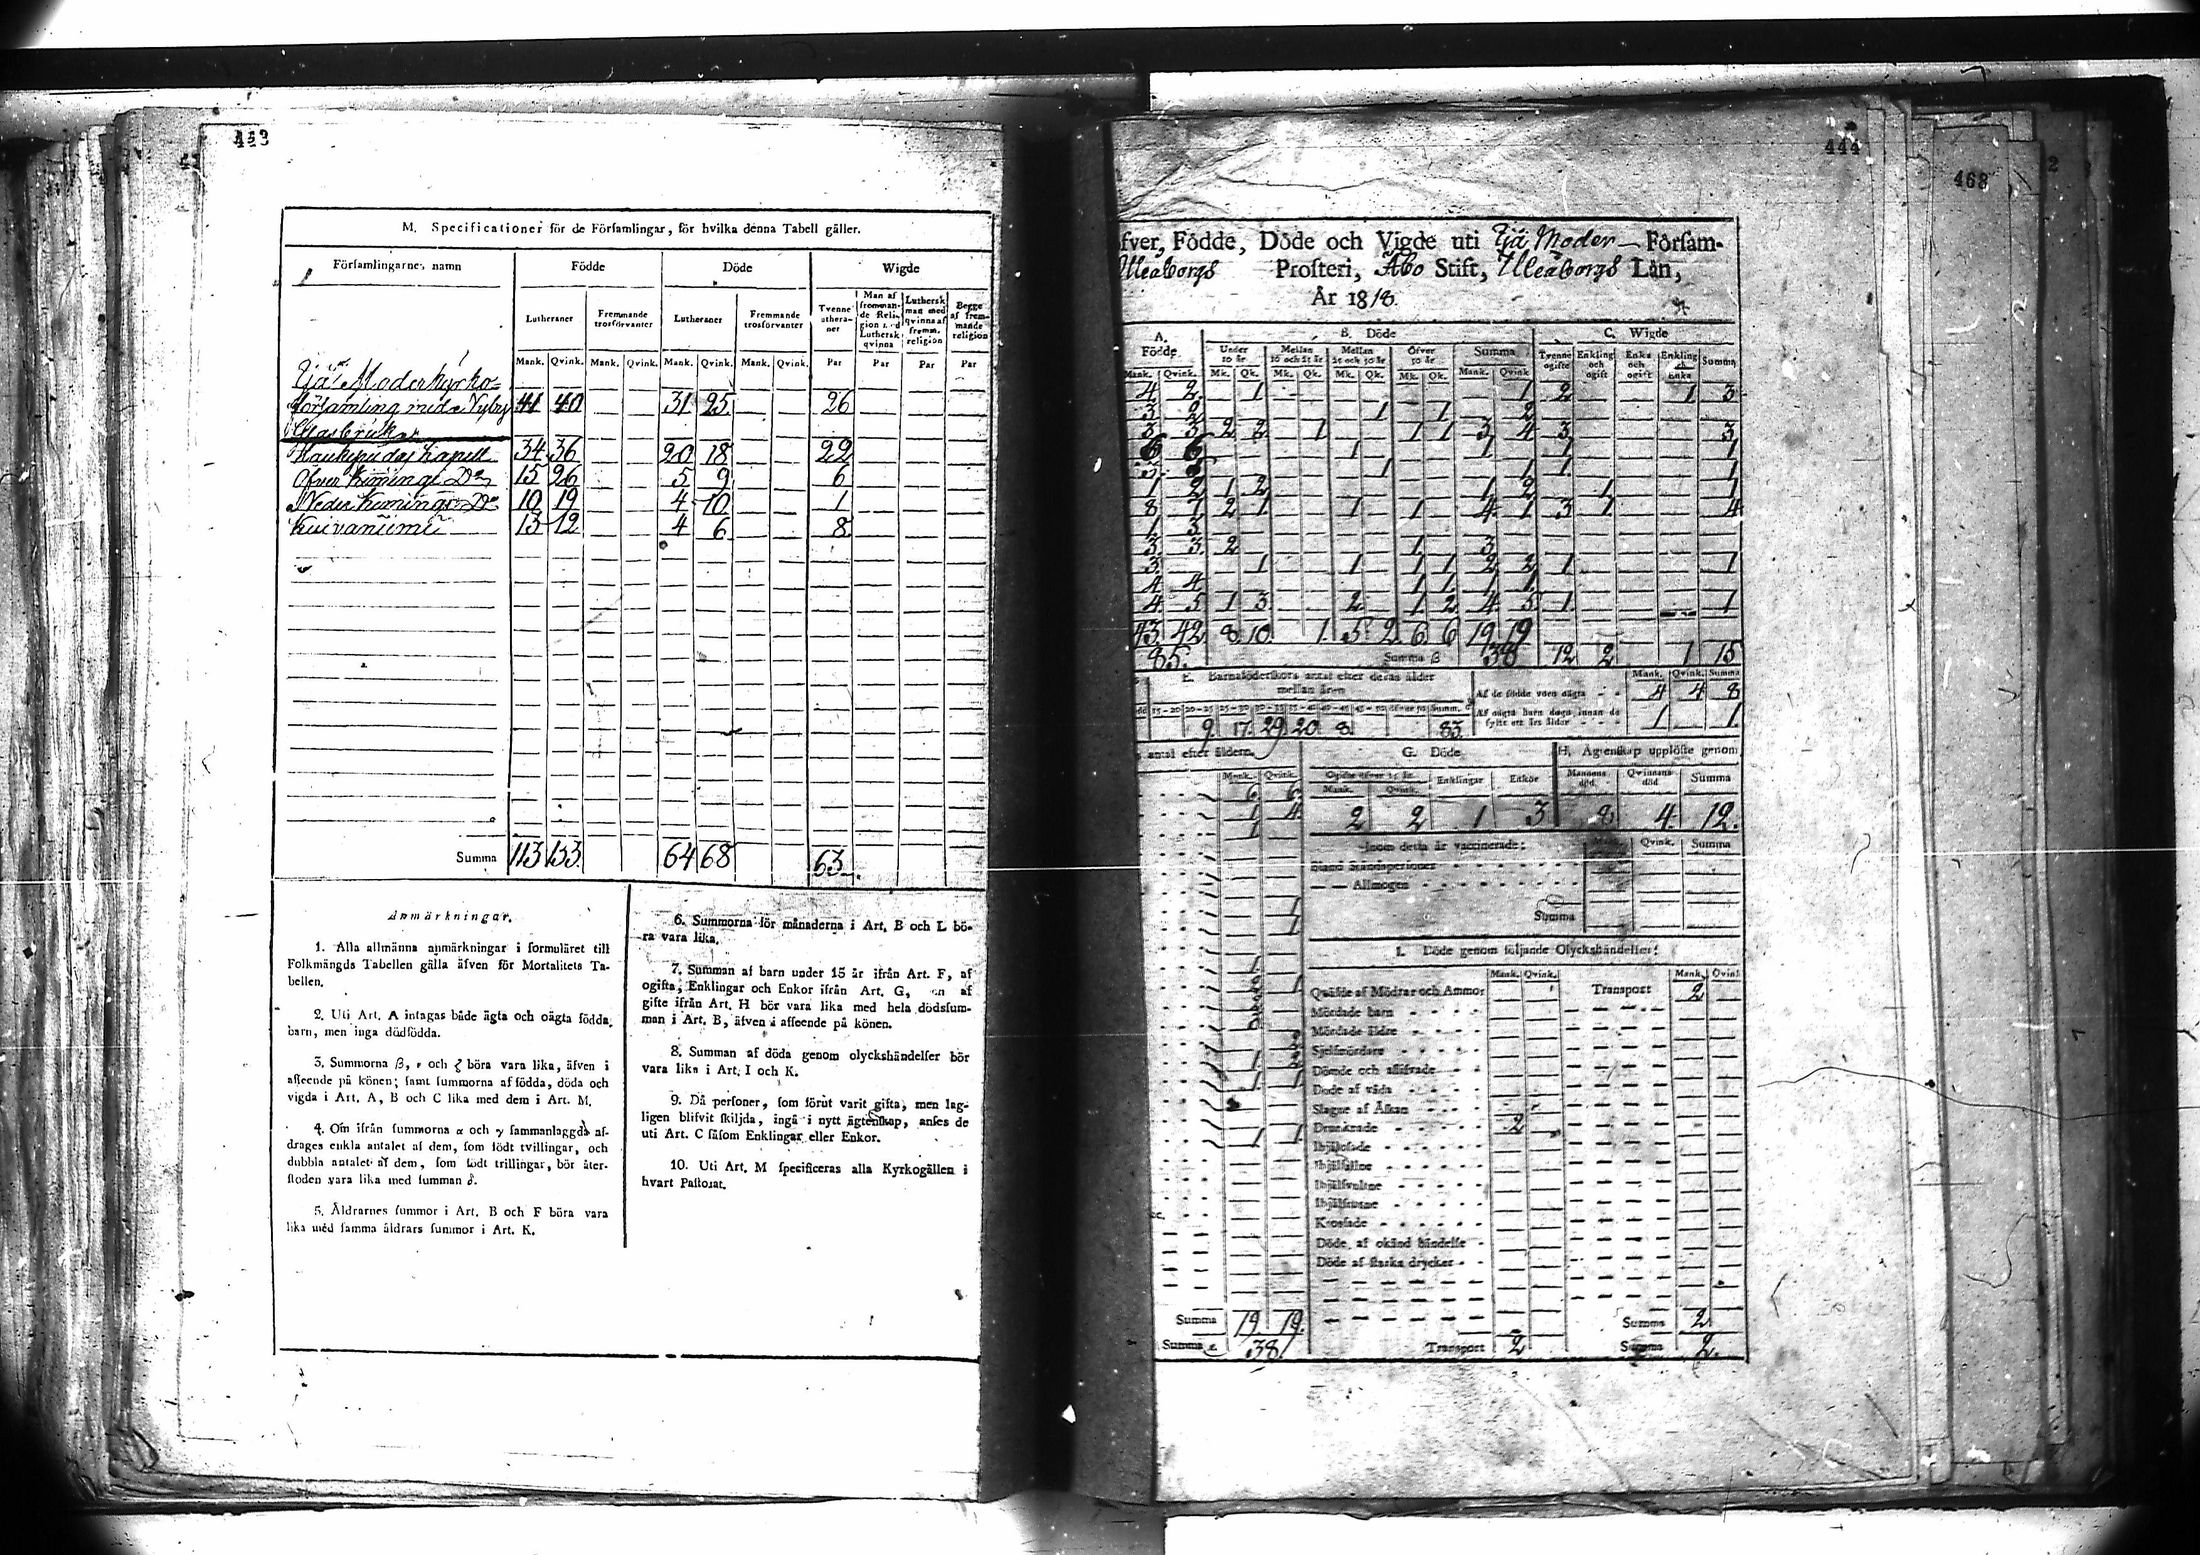 443
M. Specificationer för de Församlingar, för hvilka denna Tabell gäller.
Församlingarnes namn Födde Döde Wigde
Lutheraner Fremmande trosförvanter Lutheraner Fremmande trosförvanter Tvenne Lutheraner Man af fremmande Religion med Luthersk qvinna Luthersk man med qvinna af fremm. religion Begge af fremmande religion
Mank. Qvink. Mank. Qvink. Mank. Qvink. Mank. Qvink. Par Par Par Par
Ijä Moderkyrko-
församling med Nyby 41 40 31 25 26
Glasbruk
Haukipudas Kapell 34 36 20 18 22
Öfver Kiminge Do 15 26 5 9 6
Neder Kiminge Do 10 19 4 10 1
Kuivaniemi 13 12 4 6 8
Summa 113 133 64 68 63
Anmärkningar.
1. Alla allmänna anmärkningar i formuläret till
Folkmängds Tabellen gälla äfven för Mortalitets Ta-
bellen.
2. Uti Art. A intagas både ägta och oägta födda
barn, men inga dödfödda.
3. Summorna β, ε och ζ böra vara lika, äfven i
afseende på könen; samt summorna af födda, döda och
vigda i Art. A, B och C lika med dem i Art. M.
4. Om ifrån summorna α och γ sammanlaggda af-
drages enkla antalet af dem, som födt tvillingar, och
dubbla antalet af dem, som födt trillingar, bör åter-
stoden vara lika med summan δ.
5. Åldrarnes summor i Art. B och F böra vara
lika med samma åldrars summor i Art. K.
6. Summorna för månaderna i Art. B och L bö-
ra vara lika.
7. Summan af barn under 15 år ifrån Art. F, af
ogifta, Enklingar och Enkor ifrån Art. G, en af
gifte ifrån Art. H bör vara lika med hela dödssum-
man i Art. B, äfven i afseende på könen.
8. Summan af döda genom olyckshändelser bör
vara lika i Art. I och K.
9. Då personer, som förut varit gifta, men lag-
ligen blifvit skiljda, ingå i nytt ägtenskap, anses de
uti Art. C såsom Enklingar eller Enkor.
10. Uti Art. M specificeras alla Kyrkogällen i
hvart Pastorat.
444
468
2
öfver, Födde, Döde och Vigde uti Ijä Moder Försama-
Uleåborgs Prosteri, Åbo Stift, Uleåborgs Län,
År 1818.
A. Födde B. Döde C. Wigde
Under 10 år Mellan 10 och 25 år Mellan 25 och 50 år Öfver 50 år Summa Tvenne ogifte Enkling och ogift Enka och ogift Enkling och Enka Summa
Mank. Qvink. Mk. Qk. Mk. Qk. Mk. Qk. Mk. Qk. Mank. Qvink
4 2 1 1 2 1 3
3 2 1 1 2
3 3 2 2 1 1 1 3 4 3 3
6 6 1 1 1 1
1 2 1 2 1 2 1 1
8 7 2 1 1 1 4 1 3 1 4
1 3
3 3 2 1 3
3 1 1 1 1 2 2 1 1
4 4 1 1 1 1
4 5 1 3 2 1 2 4 5 1 1
43 42 8 10 1 5 2 6 6 19 19
85. Summa β 38 12 2 1 15
E. Barnaföderskors antal efter deras ålder
mellan åren
15-20 20-25 25-30 30-35 35-40 40-45 45-50 öfver 50 Summ. δ
9 17 29 20 8 83.
Mank. Qvink. Summa
Af de födde voro oägta 4 4 8
Af oägta barn dogo innan de
fyllt ett års ålder 1 1
antal efter åldern. G. Döde H. Ägtenskap upplöste genom
Mank. Qvink. Ogifte öfver 15 år Mank. Qvink. Enklingar Enkor Mannens död Qvinnans död Summa
2 2 1 3 8 4 12.
Inom detta år vaccinerade:
Qvink. Summa
Bland Ståndspersoner
— — Allmogen
Summa
I. Döde genom följande Olyckshändelser:
Mank. Qvink. Mank. Qvink
Qväfde af Mödrar och Ammor Transport 2
Mördade barn
Mördade äldre
Sjelfmördare
Dömde och aflifvade
Döde af våda
Slagne af Åskan
Drunknade 2
Ihjälfrusne
Krossade
Döde af okänd händelse
Döde af starka drycker
Summa 19 19. Summa 2
Summa ε 38 Transport 2 Summa 2.